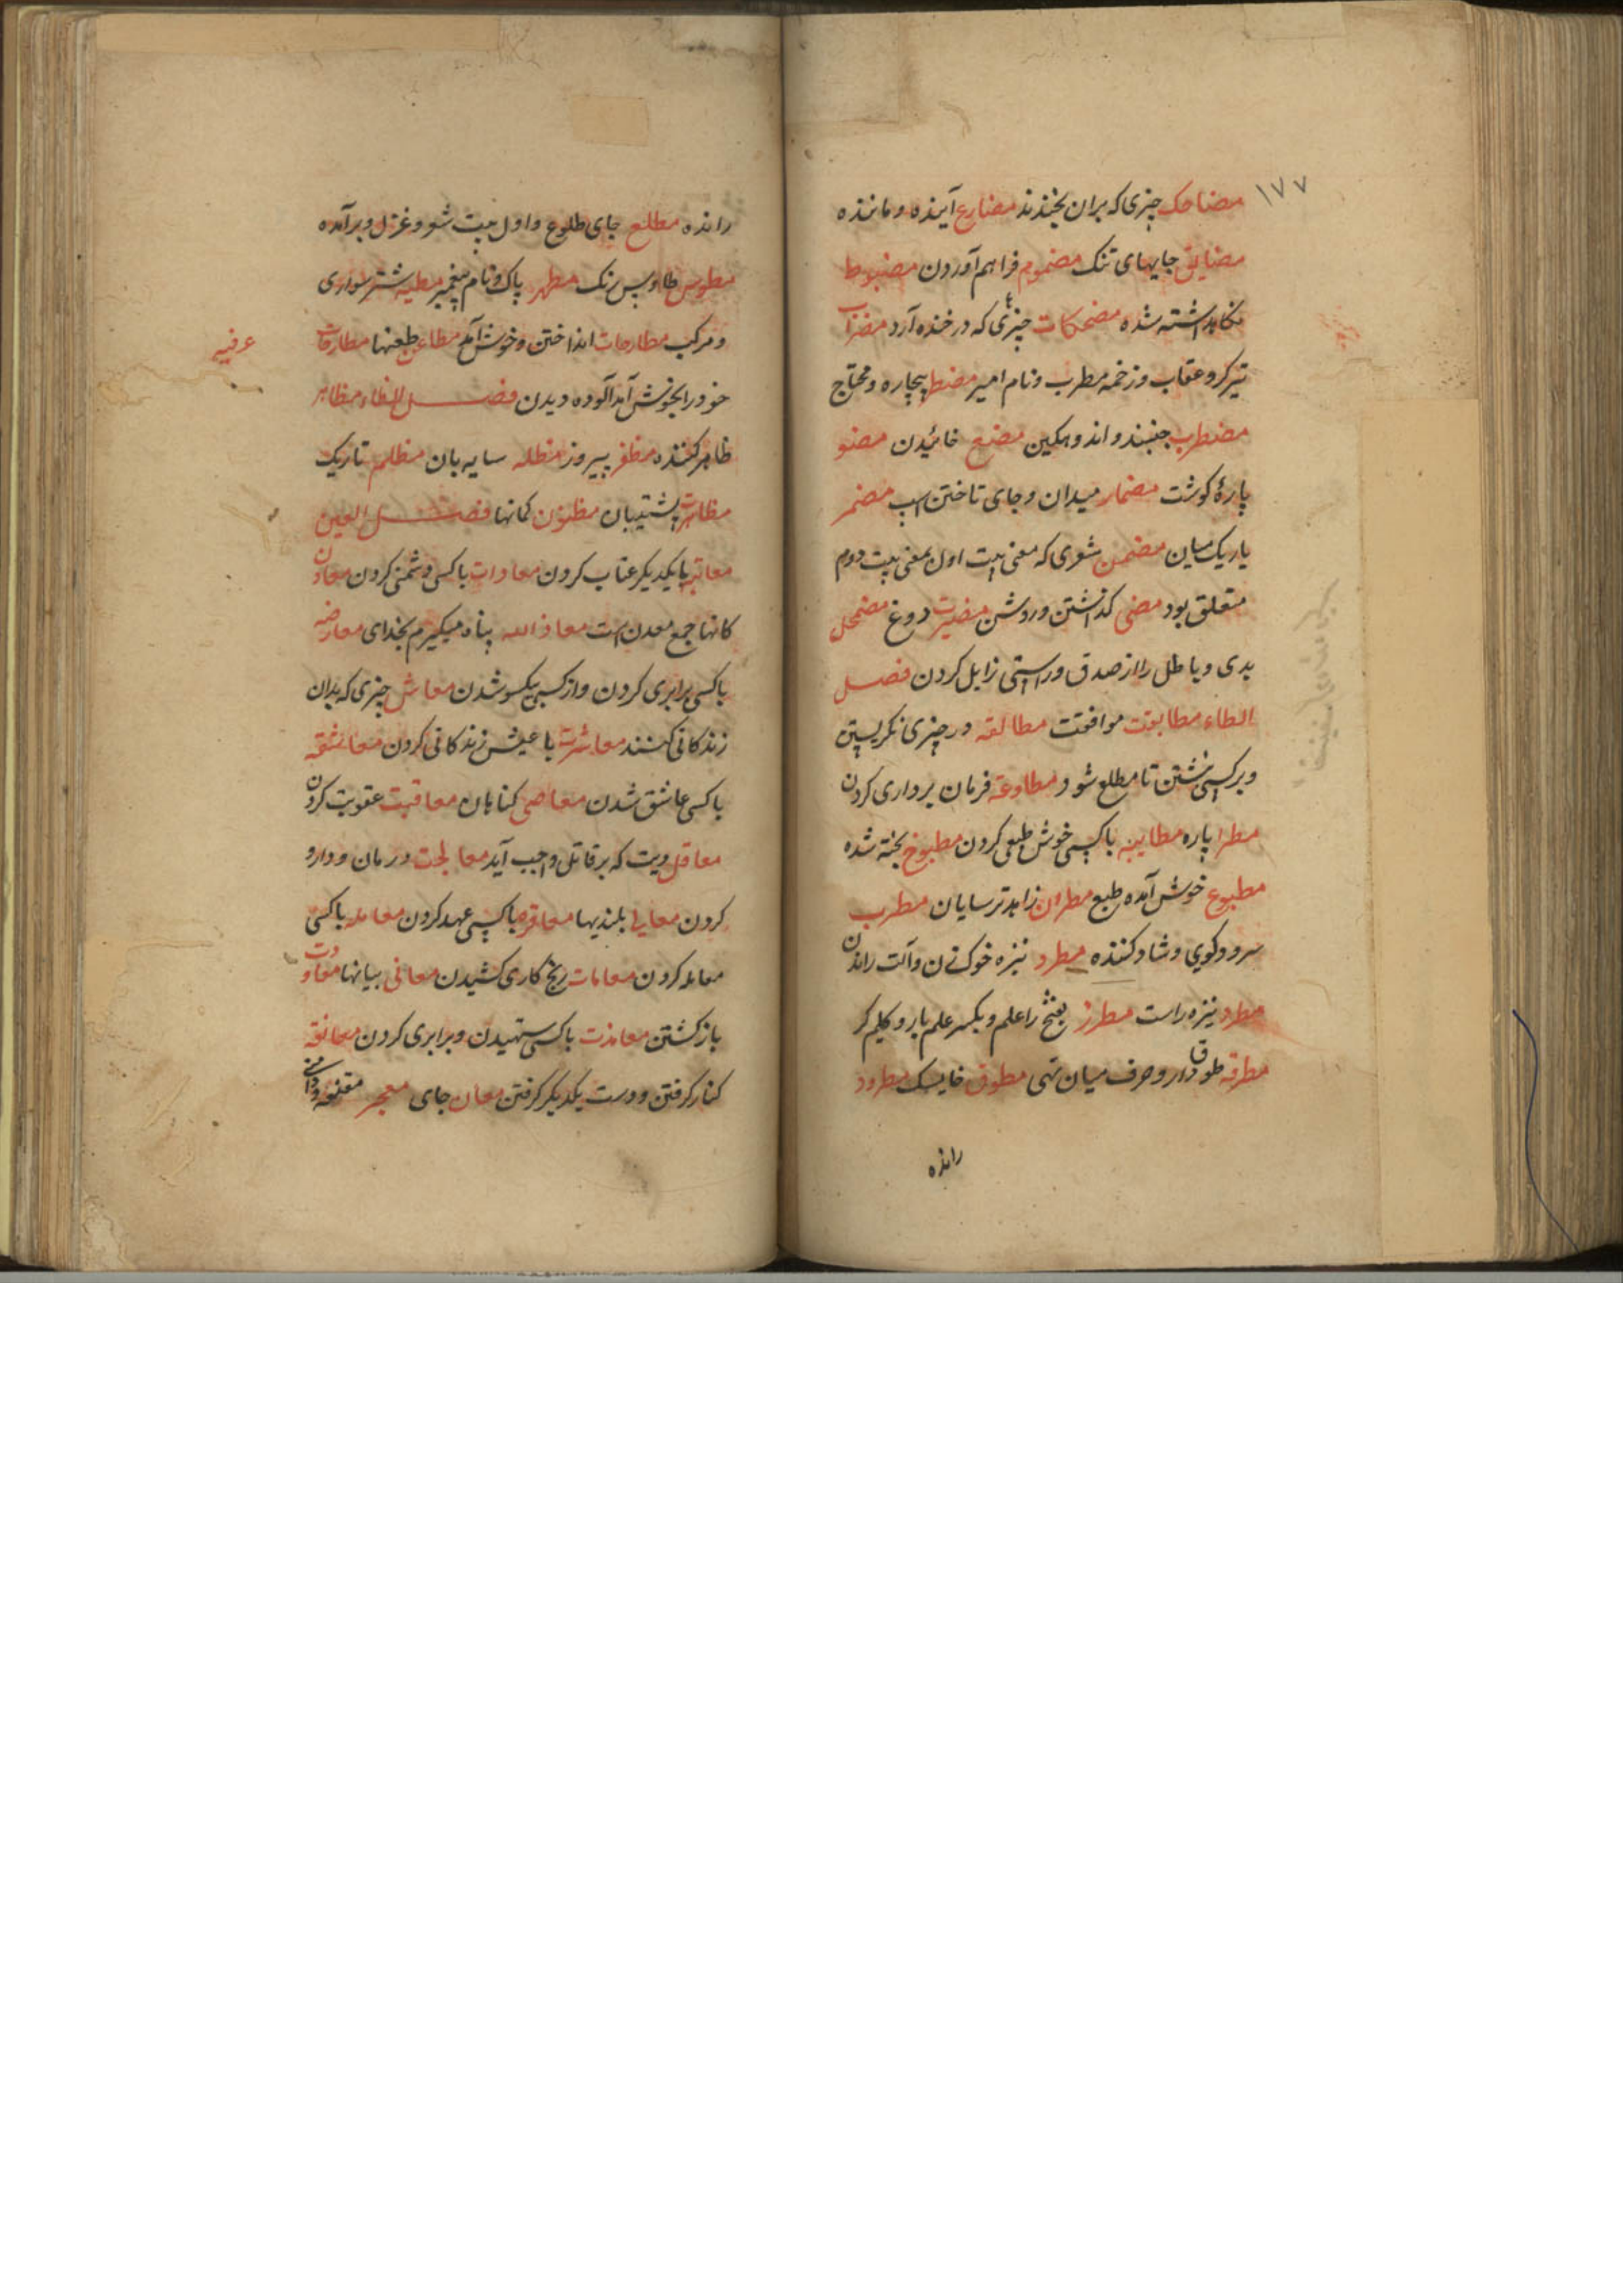 ۱۷۷
مضاحک چیزی که بران بخندند مضارع آینده و ماننده
مضایق جایهای تنک مضموم فراهم آوردن مضبوط
نکاهداشته شده مضحکات چیزی که در خنده آرد مضراب
تیرکر و عقاب و زخمه مطرب و نام امیر مضطر بیچاره و محتاج
مضطرب جنبنده و اندوهکین مضغ خائیدن مضغو
پارهٔ کوشت مضمار میدان و جای تاختن اسپ مضمر
باریک میان مضمن شعری که معنی بیت اول بمعنی بیت دوم
متعلق بود مضی کذاشتن و روشن مضیرت دوغ مضمحل
بدی و باطل را از صدق و راستی زایل کردن فصل
الطاء مطابقت موافقت مطالعه در چیزی نکریستن
و بر کسی نشتن تا مطلع شود مطاوعه فرمان برداری کردن
مطرا پاره مطایبه با کسی خوش طبعی کردن مطبوخ پخته شده
مطبوع خوش آمده طبع مطران زاهد ترسایان مطرب
سرودکوی و شاد کننده مطرد نیزه خوک زن و آلت راندن
مطرد نیزه راست مطرز بفتح را علم و بکسر علم بار و کلیم کر
مطرقه طوق دار و حرف میان تهی مطوق خایسک مطرود
رانده
رانده مطلع جای طلوع و اول بیت شعر و غزل و برآمده
مطوس طاوس رنک مطهر پاک و نام پیغمبر مطیه شتر سواری
و مرکب مطارحات انداختن و خوش آمد مطاعن طعنها مطارقات
عرفیه
خود را بخوش آمد آلوده دیدن فصل الظاء مظاهر
ظاهر کننده مظفر پیروز مظله سایه بان مظلم تاریک
مظاهرت پشتیبان مظنون کمانها فصل العین
معاتبه با یکدیکر عتاب کردن معادات با کسی دشمنی کردن معادن
کانها جمع معدن است معاذ الله پناه میکیرم بخدای معارضه
با کسی برابری کردن و از کسی بیکسو شدن معاش چیزی که بدان
زندکانی کنند معاشرت با عیش زندکانی کردن معاشقه
با کسی عاشق شدن معاصی کناهان معاقبت عقوبت کردن
معاقل دیت که بر قاتل واجب آید معالجت درمان و دارو
کردن معالی بلندیها معاقره با کسی عهد کردن معامله با کسی
معامله کردن معانات رنج کاری کشیدن معانی بیانها معاودت
باز کشتن معاندت با کسی ستهیدن و برابری کردن معانقه
کنار کرفتن و دست یکدیکر کرفتن معان جای معجر مقنعه و دامنی